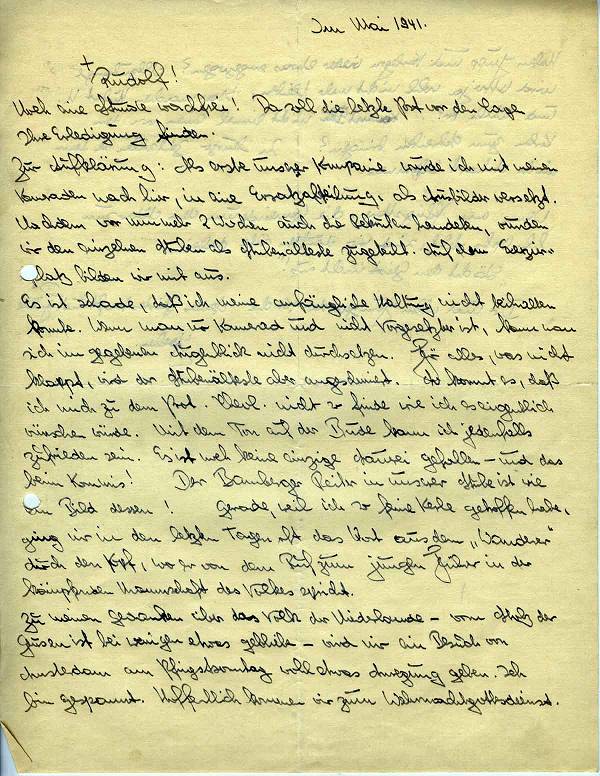 Im Mai 1941.
+
Rudolf!
Noch eine Stunde wachfrei! Da soll die letzte Post vor den Tagen
ihre Erledigung finden.
Zur Aufklärung: Als erste unserer Kompanie wurde ich mit meinen
Kameraden nach hier, in eine Ersatzabteilung, als Ausbilder versetzt.
Nachdem vor nunmehr 2 Wochen auch die Rekruten landeten, wurden
wir den einzelnen Stuben als Stubenälteste zugeteilt. Auf dem Exerzier-
platz bilden wir mit aus.
Es ist schade, daß ich meine anfängliche Haltung nicht behalten
konnte. Wenn man nur Kamerad und nicht Vorgesetzter ist, kann man
sich im gegebenen Augenblick nicht durchsetzen. Für alles, was nicht
klappt, wird der Stubenälteste aber angeschmiert. So kommt es, daß
ich mich zu dem Prot. Theol. nicht so finde wie ich es eigentlich
wünschen würde. Mit dem Ton auf der Bude kann ich jedenfalls
zufrieden sein. Es ist noch keine einzige Sauerei gefallen – und das
beim Kommis! Der Bamberger Reiter in unserer Stube ist wie
ein Bild dessen! Gerade, weil ich so feine Kerle getroffen habe,
ging mir in den letzten Tagen oft das Wort aus dem „Wanderer"
durch den Kopf, wo er von dem Ruf zum jungen Führer in der
kämpfenden Mannschaft des Volkes spricht.
Zu meinen Gedanken über das Volk der Niederlande – vom Stolz der
Geusen ist bei wenigen etwas geblieben – wird mir ein Besuch von
Amsterdam am Pfingstsonntag wohl etwas Anregung geben. Ich
bin gespannt. Hoffentlich kommen wir zum Wehrmachtgottesdienst.